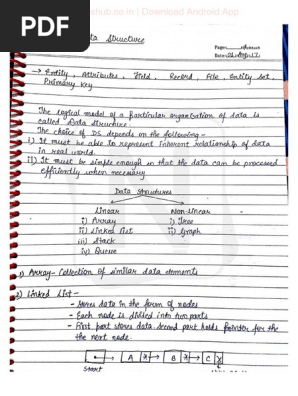 PDF
hub.co.in | Download Android App
Data Structure
Page:
Date:
→ Entity, Attributes, Field, Record, File, Entity Set,
Primary Key
The logical model of a particular organization of data is
called Data Structure.
The choice of DS depends on the following -
i) It must be able to represent inherent relationship of data
in real world.
ii) It must be simple enough so that the data can be processed
efficiently when necessary
Data Structures
Linear Non-linear
i) Array i) Tree
ii) Linked list ii) Graph
iii) Stack
iv) Queue
1) Array- Collection of similar data elements
2) Linked List -
- Stores data in the form of nodes
- Each node is divided into two parts
- First part stores data second part holds pointer for the
the next node.
A X B X C X
Start